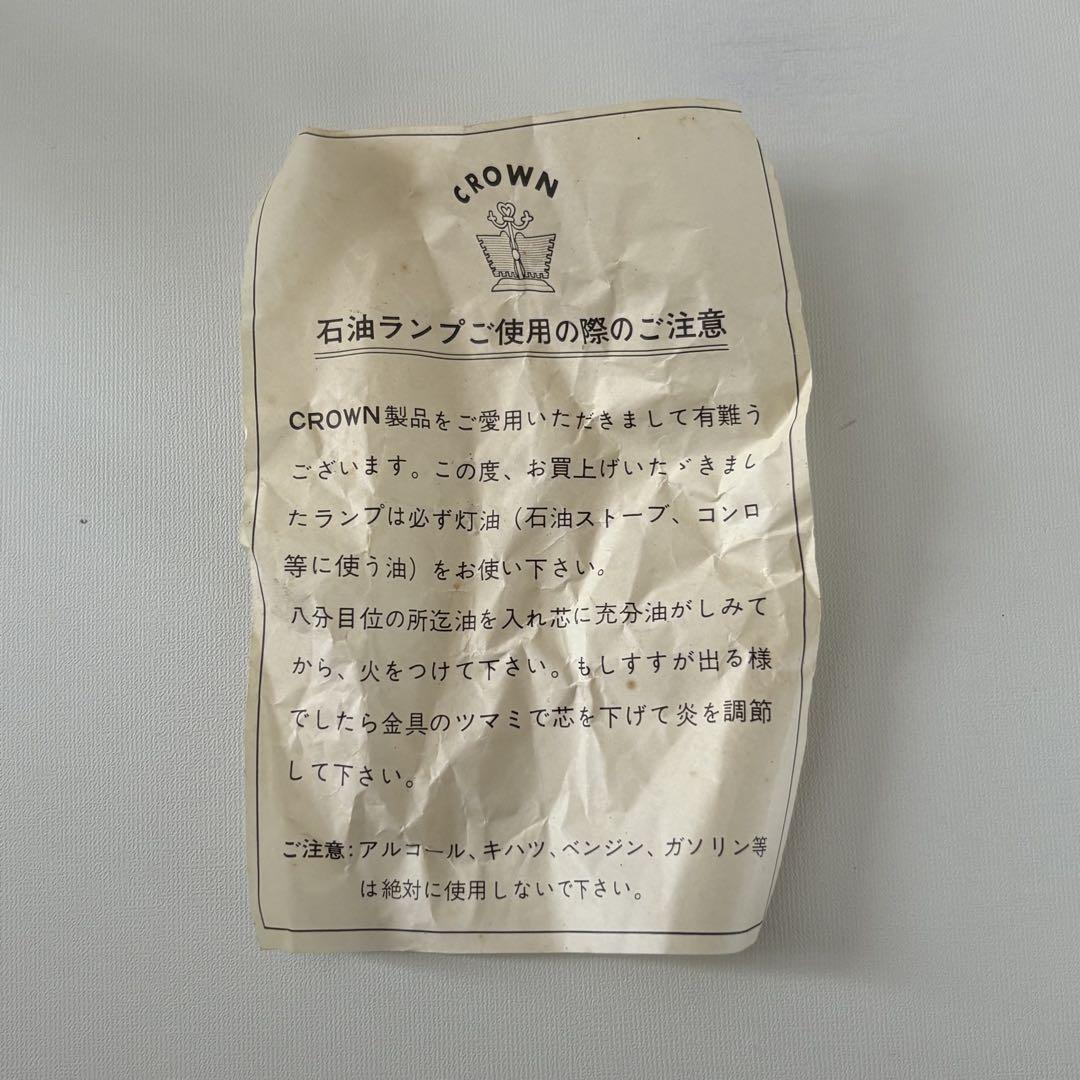 CROWN
石油ランプご使用の際のご注意
CROWN製品をご愛用いただきまして有難う
ございます。この度、お買上げいたゞきまし
たランプは必ず灯油（石油ストーブ、コンロ
等に使う油）をお使い下さい。
八分目位の所迄油を入れ芯に充分油がしみて
から、火をつけて下さい。もしすすが出る様
でしたら金具のツマミで芯を下げて炎を調節
して下さい。
ご注意：アルコール、キハツ、ベンジン、ガソリン等
は絶対に使用しないで下さい。